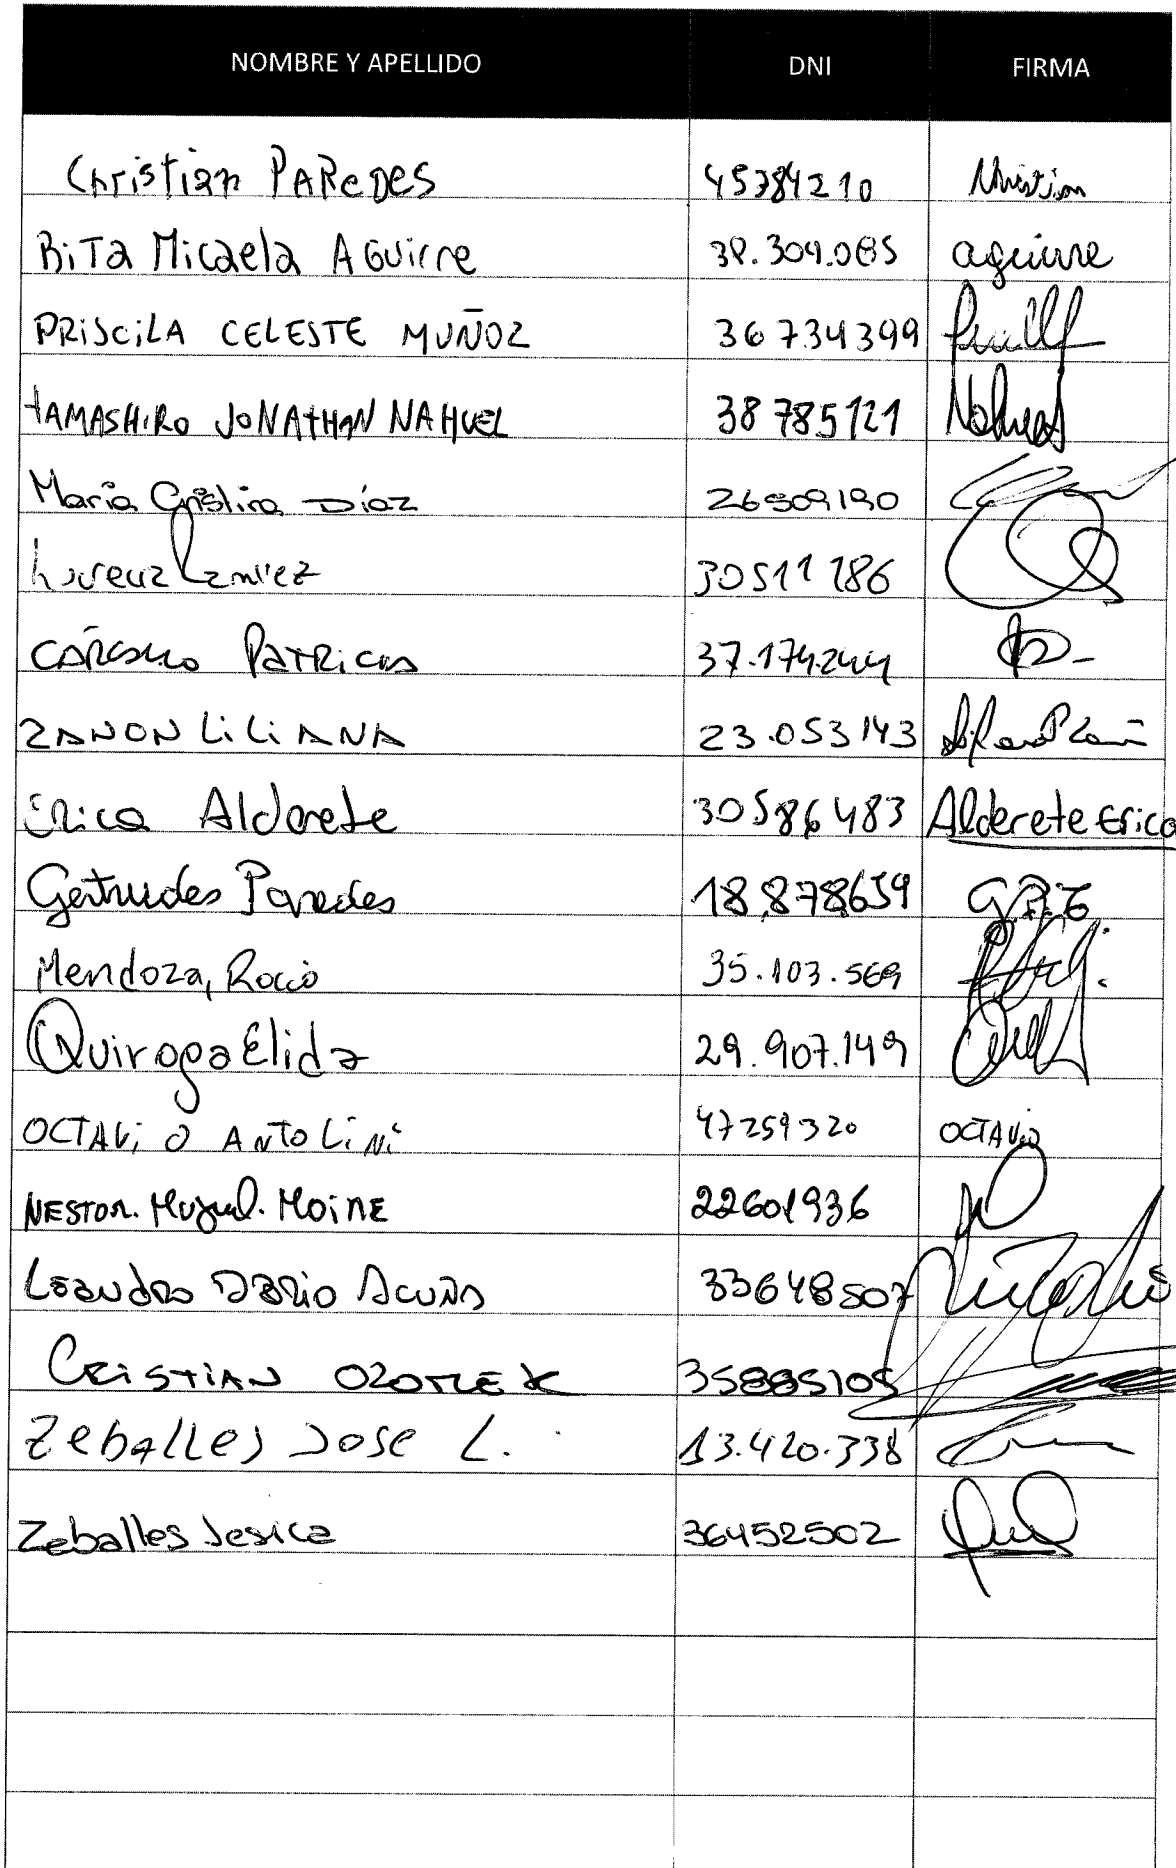 NOMBRE Y APELLIDO DNI FIRMA
Christian PAReDes 45384210 Christian
RiTa Micaela AGuirre 38.309.085 aguirre
PRiSCiLA CELESTE MUÑOZ 36734399
tAMASHiRo JoNATHAN NAHUEL 38785121 Nahuel
María Cristina Díaz 26509190
Lorena Ramirez 30511786
PATRiCia 37.174.244
ZANON LiLiANA 23.053143
Erica Alderete 30586483 Alderete Erica
Gertrudes Paredes 18.878659
Mendoza, Rocio 35.103.569
Quiroga Elida 29.907.149
OCTAViO ANToLiNi 47259320 OCTAViO
NESTOR. Miguel. MoiNE 22601936
Leandro Dario Acuña 33648507
CRiSTiAN OZOMEK 35885105
Zeballes Jose L. 13.420.338
Zeballes Jesica 36452502